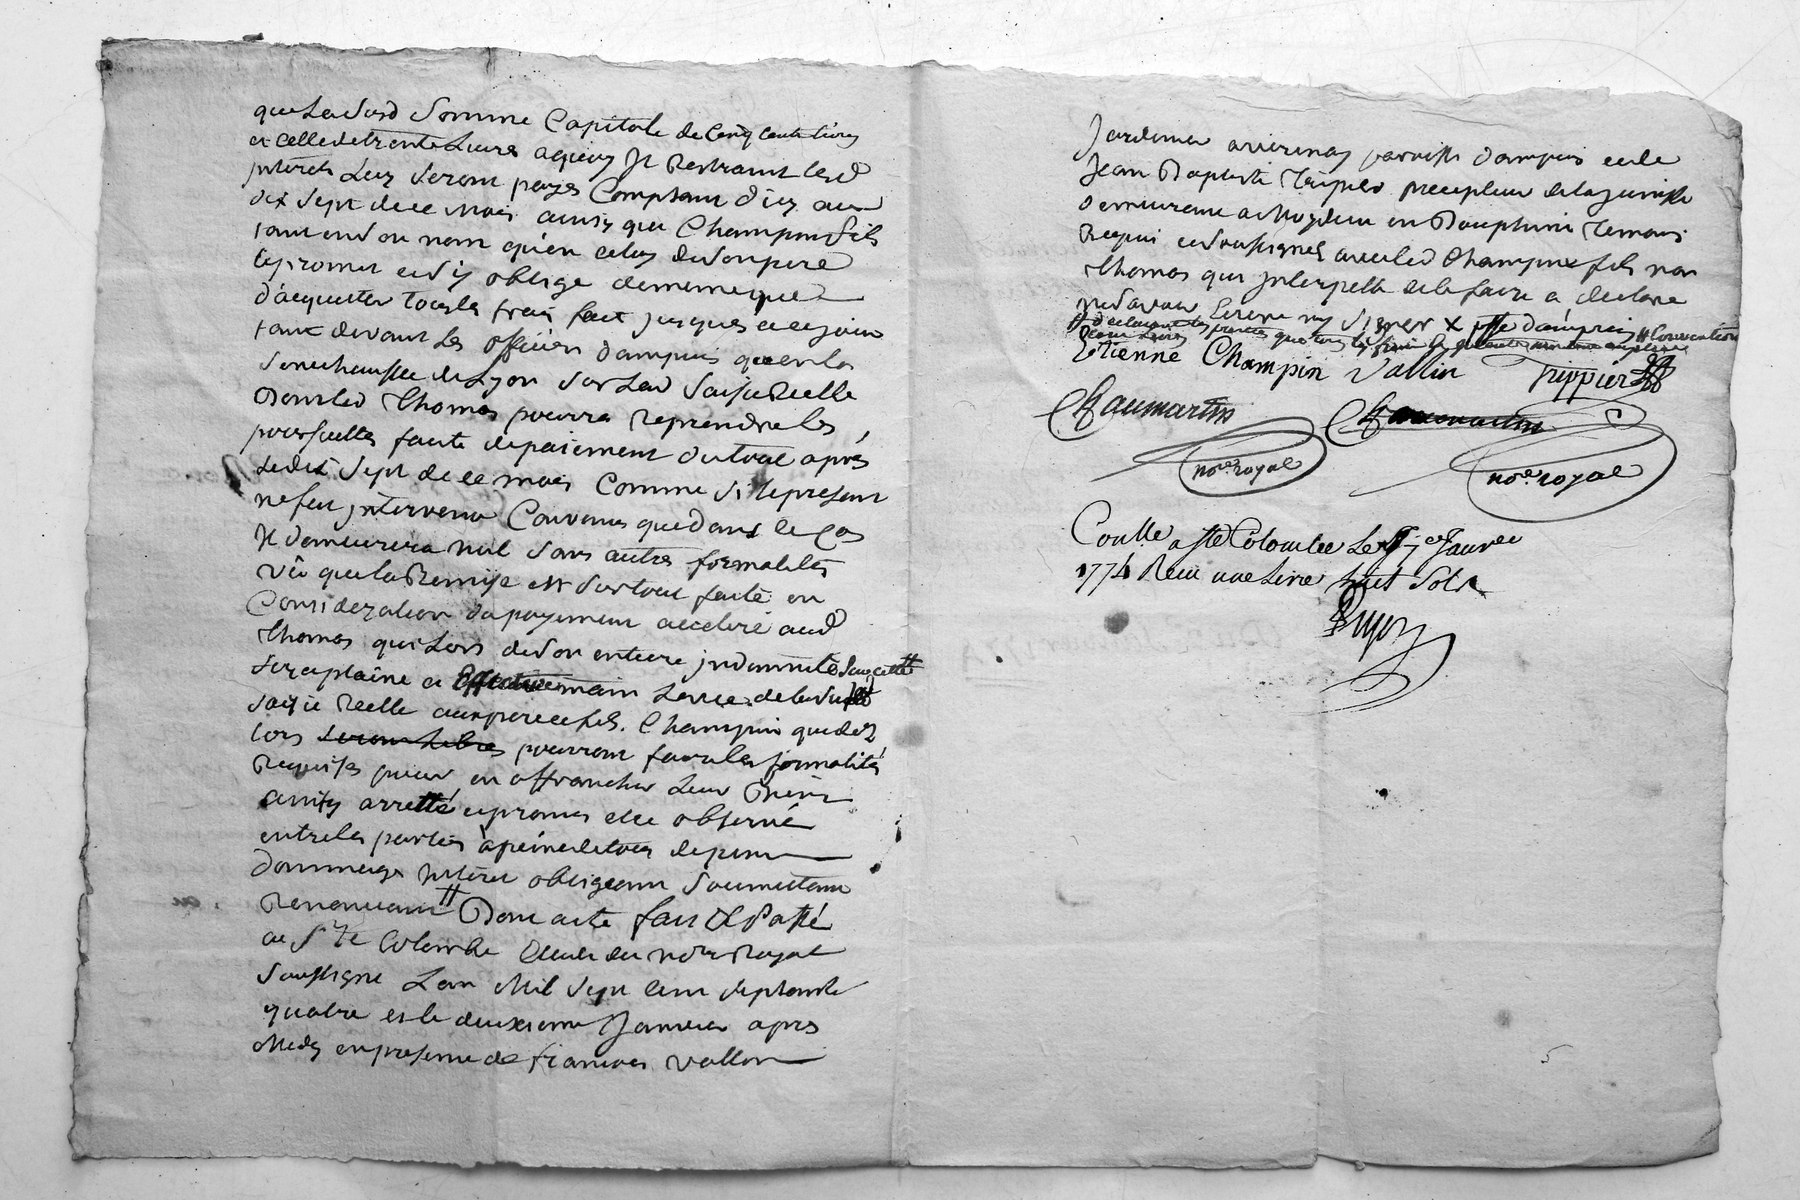 que Lasusd Somme Capitale de Cinq cents livres
et celle de trente Livres aquoy Il Restraint lesd
jnterets Luy seront payés Comptant d'icy au
dix sept de ce mois ainsy que Champin fils
tant en son nom qu'en celuy de son pere
le promet et s'y oblige de meme que
d'acquitter tous les frais fait jusques a ce jour
tant devant Les officiers d'ampuis qu'en la
Senechaussée de Lyon sur Lad Saisie Reelle
Dont led thomas pourra reprendre les
poursuittes faute de paiement du tout après
Le dix sept de ce mois Comme si le present
ne fut jntervenu Convenus que dans le Cas
Il demeurera nul sans autres formalités
vû que la Remise est sur tout faite en
Consideration du payement acceleré aud
thomas qui Lors de son entiere jndemnité
fera plaine et main Levée de la sud
saisie Reelle aux pere et fils Champin que dez
lors seront libres pourront faire les formalités
Requises pour en affranchir Leur Biens
ainsy arretté et promis etre observé
entre les parties à peine de tous depens
dommages jnteret obligeant Soumettant
Renonceant # Dont acte fait & Passé
a Ste Colombe Etude du no.re Royal
Soussigné Lan Mil sept cent septante
quatre et le deuxieme Janvier apres
Midy en presence de francois vallin
Jardinier a verenay parroisse d'ampuis et de
Jean Baptiste Trippier precepteur de la jeunesse
demeurant a Moydieu en Dauphiné temoins
Requis et soussignés avec led Champin fils non
thomas qui jnterpellé de le faire a declaré
ne savoir Ecrire ny signer
Etienne Champin Vallin Trippier
Chaumartin Chaumartin
no.re royal no.re royal
Con.lle a Ste Colombe Le Janvier
1774 Reçu une Livre huit Sols